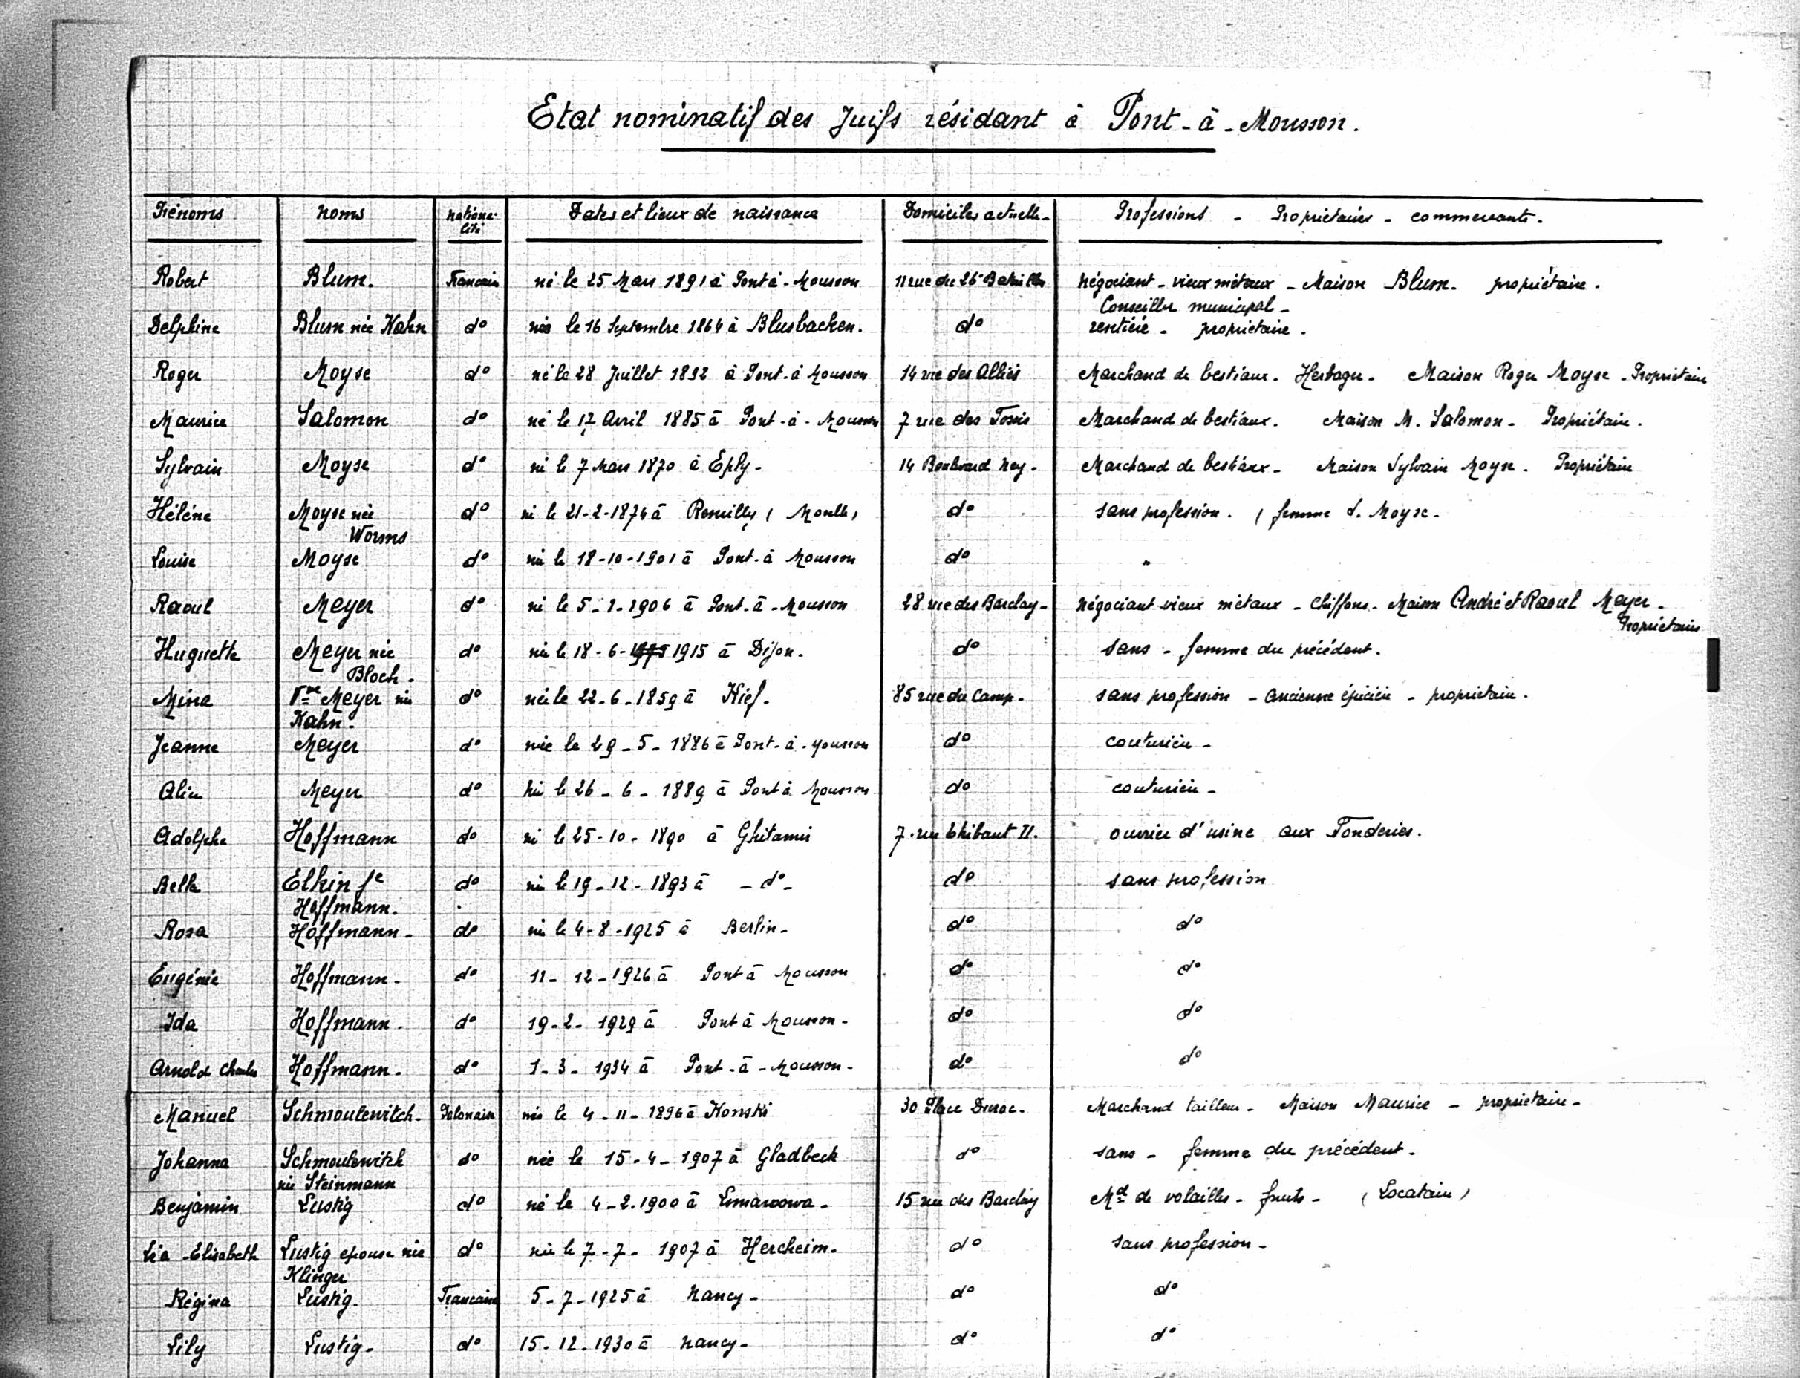 Etat nominatif des Juifs résidant à Pont-à-Mousson.
Prénoms noms nationalité Dates et lieux de naissance Domiciles actuelle- Professions - Propriétaires - commercants.
Robert Blum. Francais né le 25 Mars 1891 à Pont à-Mousson 11 rue du 26e négociant - vieux métaux - Maison Blum - propriétaire.
Conseiller municipal -
Delphine Blum née Kahn do née le 16 Septembre 1864 à Blusbacken. do rentière - propriétaire.
Roger Moyse do né le 28 Juillet 1892 à Pont-à Mousson 14 rue des Alliés Marchand de bestiaux - Herbager - Maison Roger Moyse - Propriétaire
Maurice Salomon do né le 17 Avril 1885 à Pont-à-Mousson 7 rue des Fossés Marchand de bestiaux. Maison M. Salomon - Propriétaire.
Sylvain Moyse do né le 7 Mars 1870 à Eply - 14 Boulevard Ney - Marchand de bestiaux - Maison Sylvain Moyse. Propriétaire
Hélène Moyse née do né le 21-2-1874 à Remilly ( Moselle) do sans profession. ( femme S. Moyse -
Worms
Louise Moyse do née le 18-10-1901 à Pont-à Mousson do "
Raoul Meyer do né le 5-1-1906 à Pont-à-Mousson 28 rue des Barclay - négociant vieux métaux - chiffons - Maison André et Raoul Meyer -
Propriétaires
Huguette Meyer née do née le 18-6-1915 à Dijon. do sans - femme du précédent.
Bloch.
Mina Vve Meyer née do née le 22-6-1859 à Kief. 85 rue du Camp - sans profession - ancienne épicière - propriétaire.
Kahn.
Jeanne Meyer do née le 29-5-1886 à Pont-à-Mousson do couturière -
Alice Meyer do née le 26-6-1889 à Pont à Mousson do couturière -
Adolphe Hoffmann do né le 25-10-1890 à Ghitamir 7 rue thibaut II. ouvrier d'usine aux Fonderies.
Bella Elkin fe do née le 19-12-1893 à -do- do sans profession
Hoffmann.
Rosa Hoffmann - do née le 4-8-1925 à Berlin - do do
Eugénie Hoffmann - do 11-12-1926 à Pont à Mousson do do
Ida Hoffmann. do 19-2-1929 à Pont à Mousson - do do
Arnold Charles Hoffmann - do 1-3-1934 à Pont-à-Mousson - do do
Manuel Schmoulewitch - Polonaise né le 4-11-1896 à Konski 30 Place Duroc - Marchand tailleur - Maison Maurice - propriétaire -
Johanna Schmoulewitch do née le 15-4-1907 à Gladbeck do sans - femme du précédent.
née Steinmann
Benjamin Lustig do né le 4-2-1900 à Limarowa - 15 rue des Barclay Md de volailles - fruits - ( Locataire )
Léa-Elisabeth Lustig epouse née do née le 7-7-1907 à Hercheim - do sans profession -
Klinger
Régina Lustig - Francaise 5-7-1925 à Nancy - do do
Lily Lustig - do 15-12-1930 à Nancy - do do